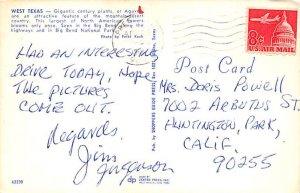 WEST TEXAS — Gigantic century plants, or Agave,
are an attractive feature of the mountain-desert
country. This largest of North American flowers
blooms only once. Seen in the Big Bend along the
highways and in Big Bend National Park.
Photo by Peter Koch
HAD AN INTERESTING
DRIVE TODAY, HOPE
THE PICTURES
COME OUT.
Regards.
Jim Ferguson
42390
Pub. by SHOPPERS GUIDE PRESS, Box
dp
8c
U.S. AIR MAIL
Post Card
MRS. DORIS POWELL
7002 ARBUTUS ST.
HUNTINGTON, PARK,
CALIF.
90255